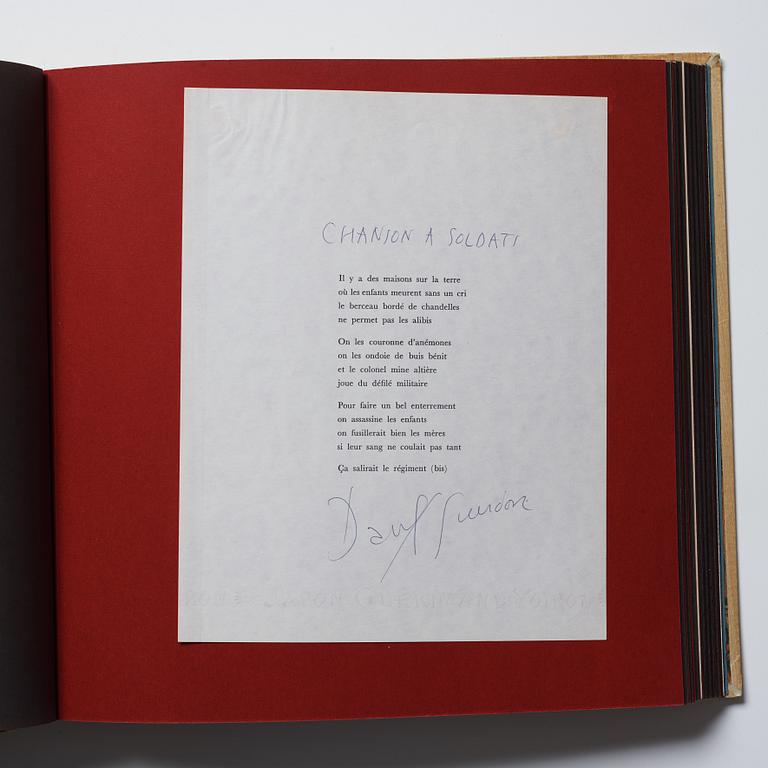 CHANSON A SOLDATS
Il y a des maisons sur la terre
où les enfants meurent sans un cri
le berceau bordé de chandelles
ne permet pas les alibis
On les couronne d'anémones
on les ondoie de buis bénit
et le colonel mine altière
joue du défilé militaire
Pour faire un bel enterrement
on assassine les enfants
on fusillerait bien les mères
si leur sang ne coulait pas tant
Ça salirait le régiment (bis)